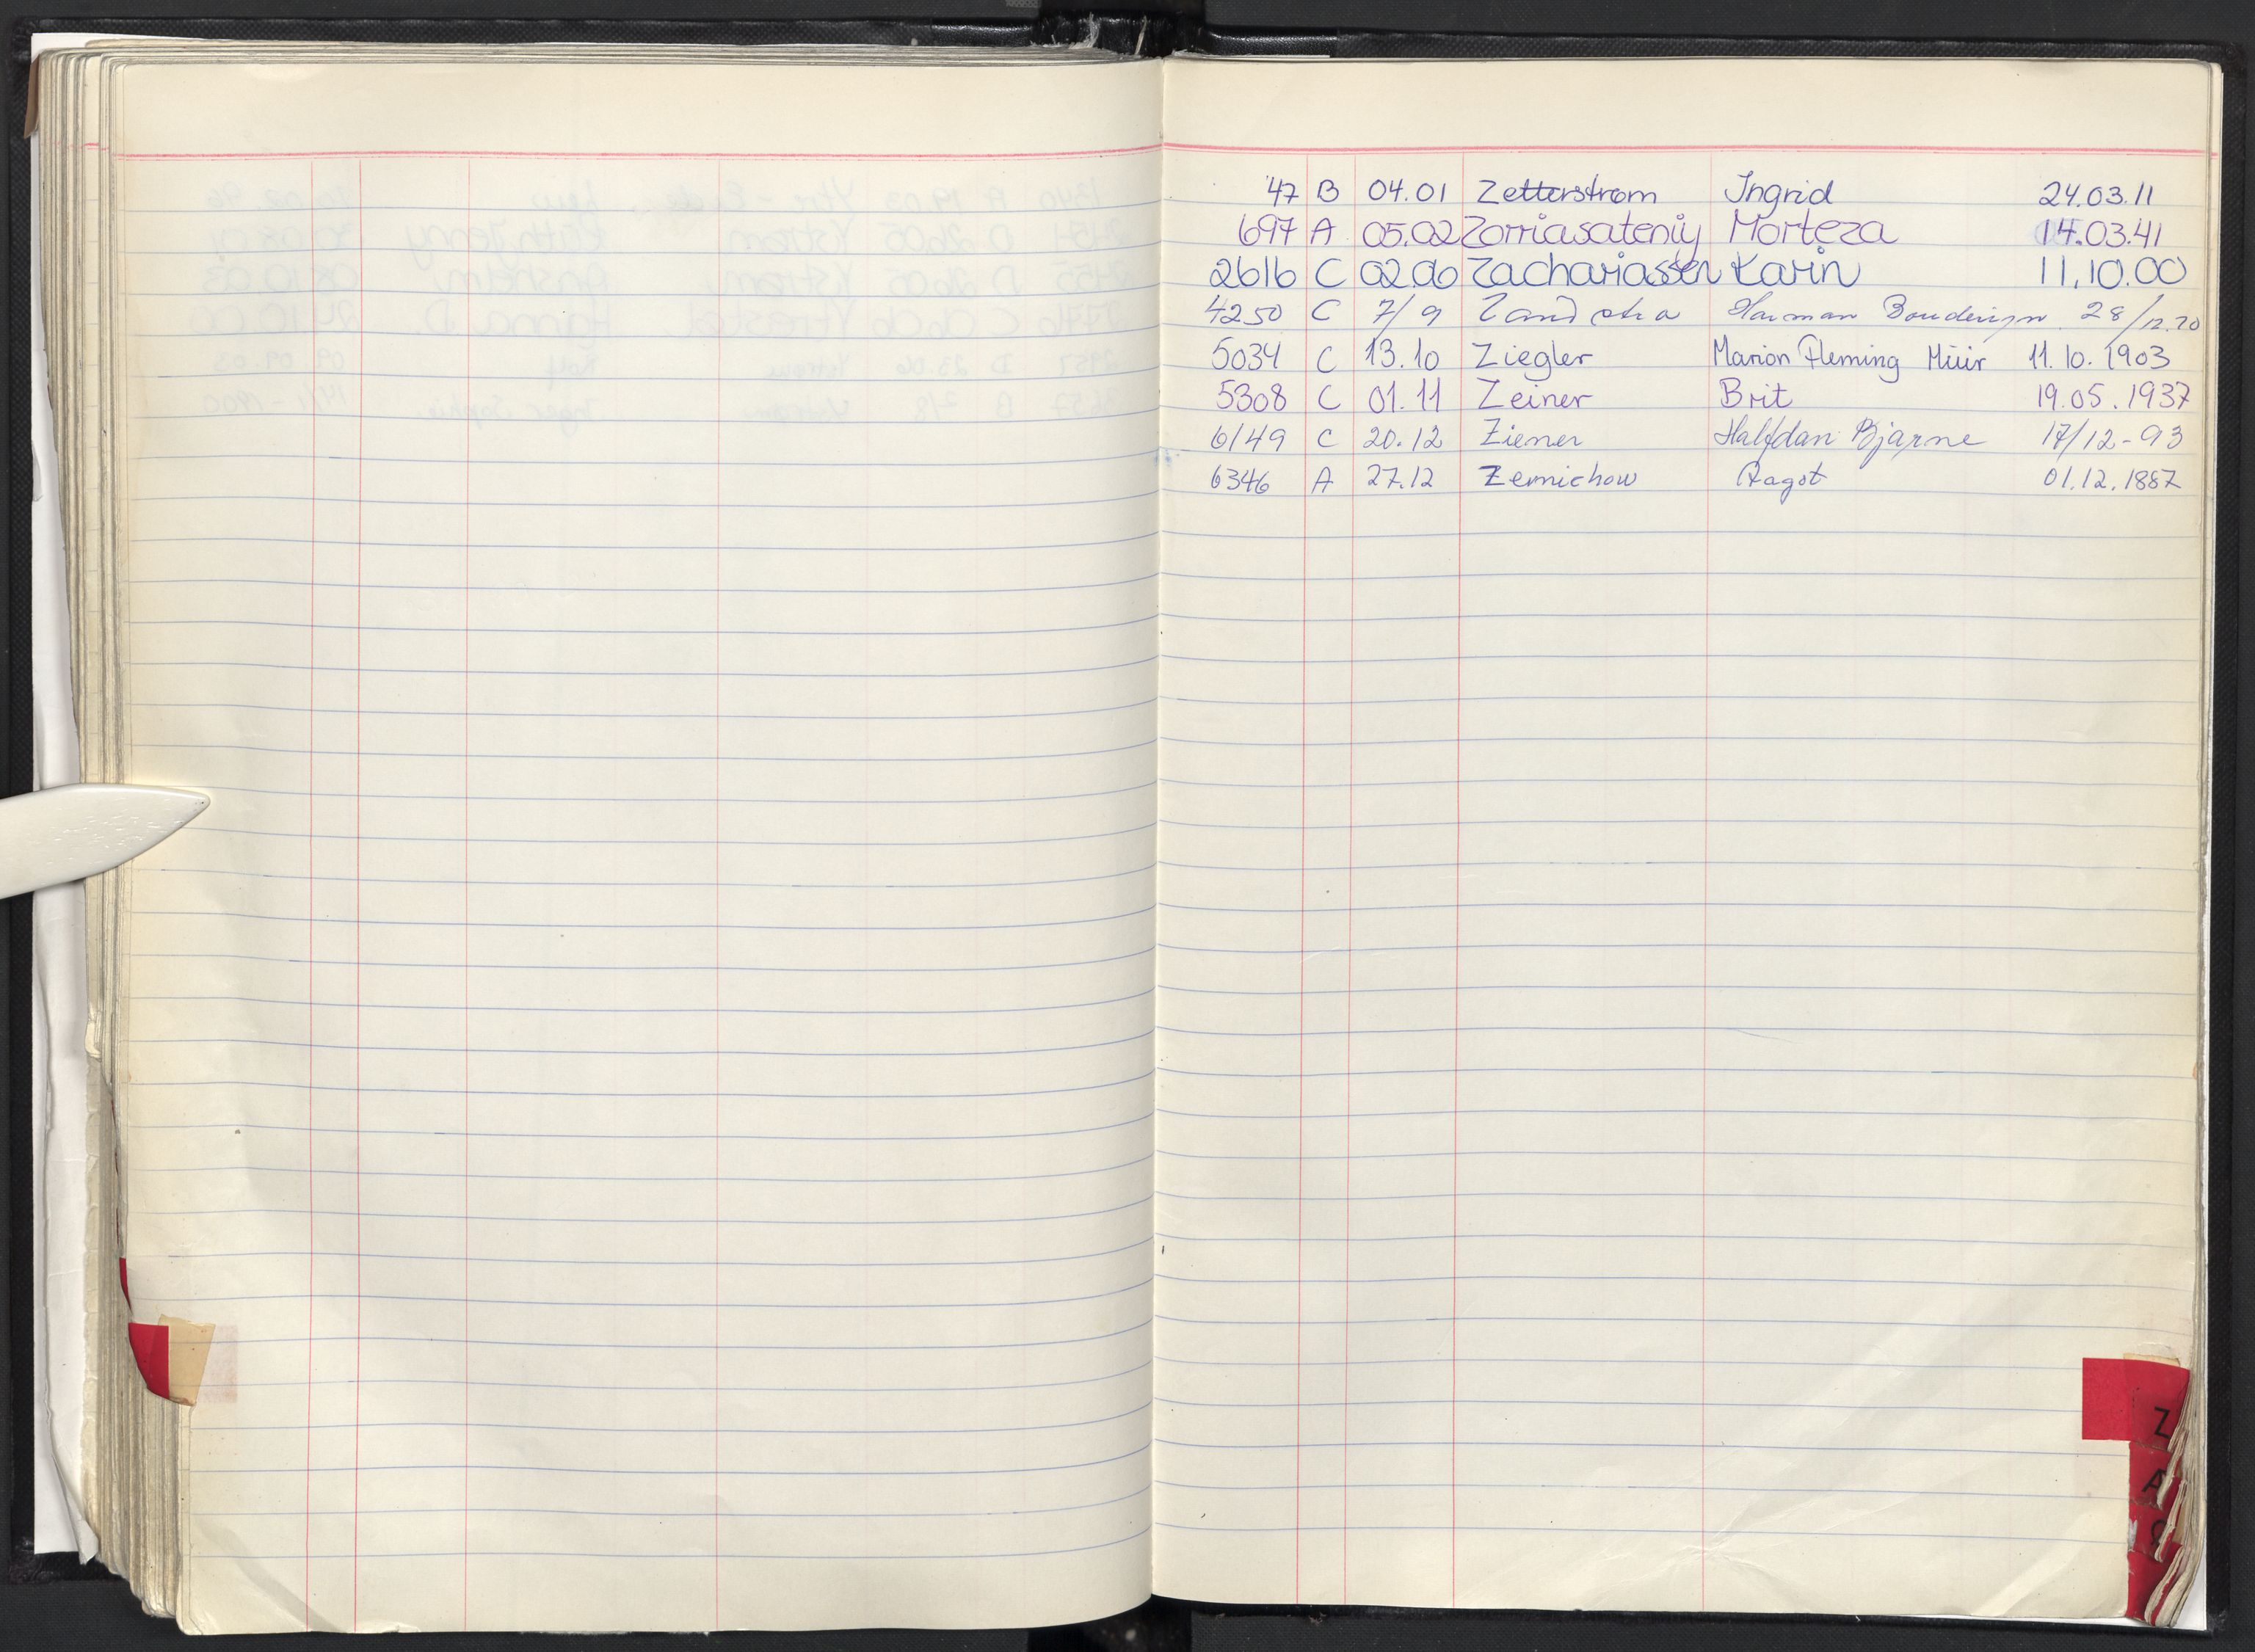 47 B 04.01 Zetterstrøm Ingrid 24.03.11
697 A 05.02 Zorriasateniy Morteza 14.03.41
2616 C 02.06 Zachariassen Karin 11.10.00
4250 C 7/9 Zandstra Harman Boudewijn 28/12.20
5034 C 13.10 Ziegler Marion Fleming Müir 11.10.1903
5308 C 01.11 Zeiner Brit 19.05.1937
6149 C 20.12 Ziener Halfdan Bjarne 17/12-93
6346 A 27.12 Zernichow Ragot 01.12.1887
Z
A